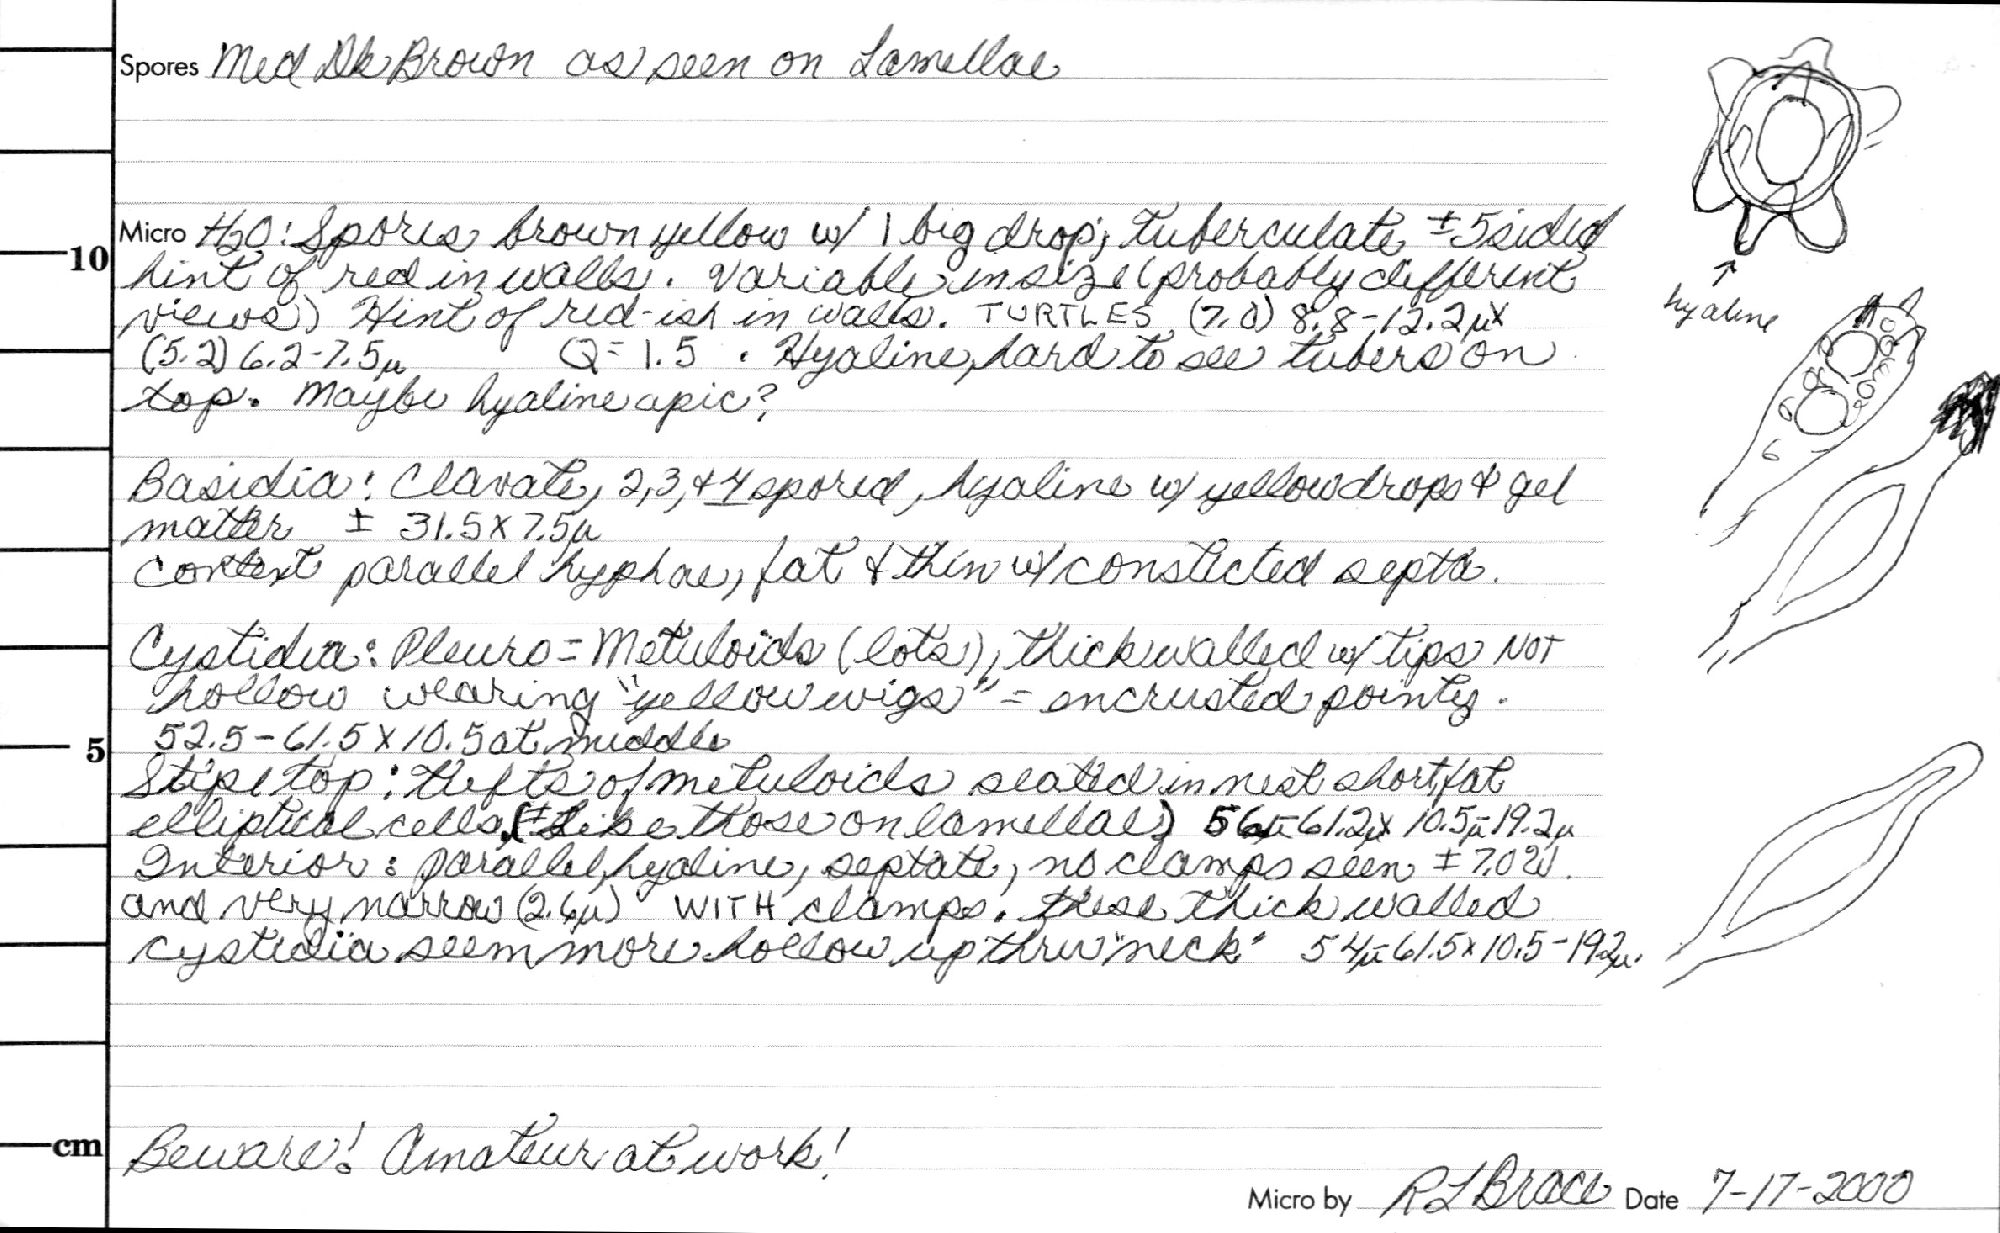 Spores Med Dk Brown as seen on Lamellae
10
Micro H2O: Spores brown yellow w/ 1 big drop; tuberculate ± 5 sided
hint of red in walls. Variable in size (probably different
views) Hint of red-ish in walls. TURTLES (7.0) 8.8-12.2µ x
(5.2) 6.2-7.5µ Q=1.5 . Hyaline, hard to see tubers on
top. Maybe hyaline apic?
hyaline
Basidia: Clavate, 2,3,+4 spored, hyaline w/ yellow drops & gel
matter ± 31.5 x 7.5µ
Context parallel hyphae, fat & thin w/ constricted septa.
Cystidia: Pleuro = Metuloids (lots), thick walled w/ tips NOT
hollow wearing "yellow wigs" = encrusted pointy.
52.5-61.5 x 10.5 at middle
5
Stipe top: tufts of metuloids seated in nest short, fat
elliptical cells, (± Like those on lamellae) 56µ-61.2µ x 10.5µ-19.2µ
Interior: parallel, hyaline, septate, no clamps seen ± 7.0 W.
and very narrow (2.6µ) WITH clamps. These thick walled
cystidia seem more hollow up thru "neck" 54µ-61.5 x 10.5-19.2µ.
cm
Beware! Amateur at work!
Micro by RL Brace Date 7-17-2000